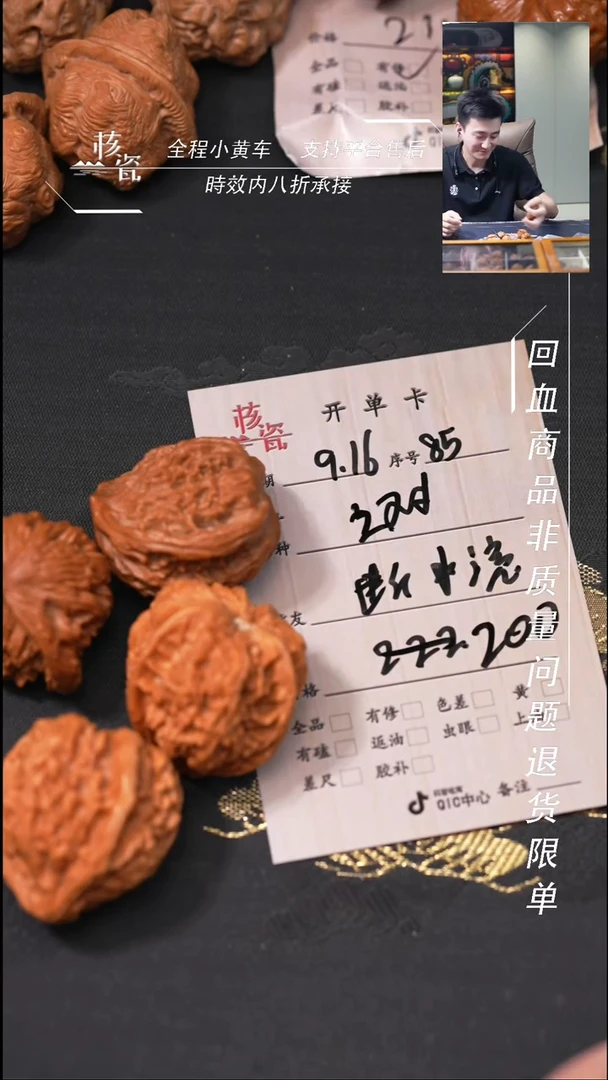 价格 21
全品 有修
有磕 返油
差尺 胶补
核瓷
全程小黄车 支持平台售后
時效内八折承接
回血商品非质量问题退货限单
核瓷
开单卡
期 9.16 序号 85
种 2对
友
格 222.200
全品 有修 色差 黄
有磕 返油 虫眼 上
差尺 胶补
抖音电商
QIC中心 备注